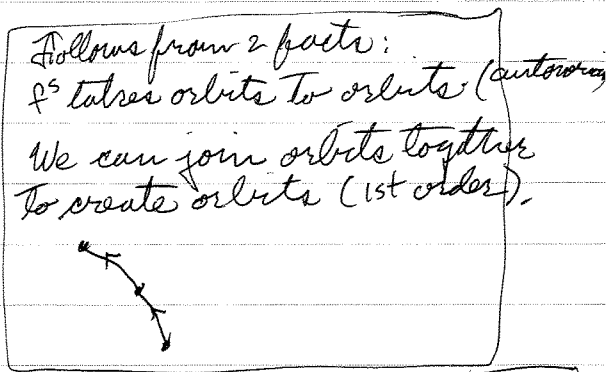 Follows from 2 facts:
f^s takes orbits to orbits. (autonomous
We can join orbits together
to create orbits (1st order).